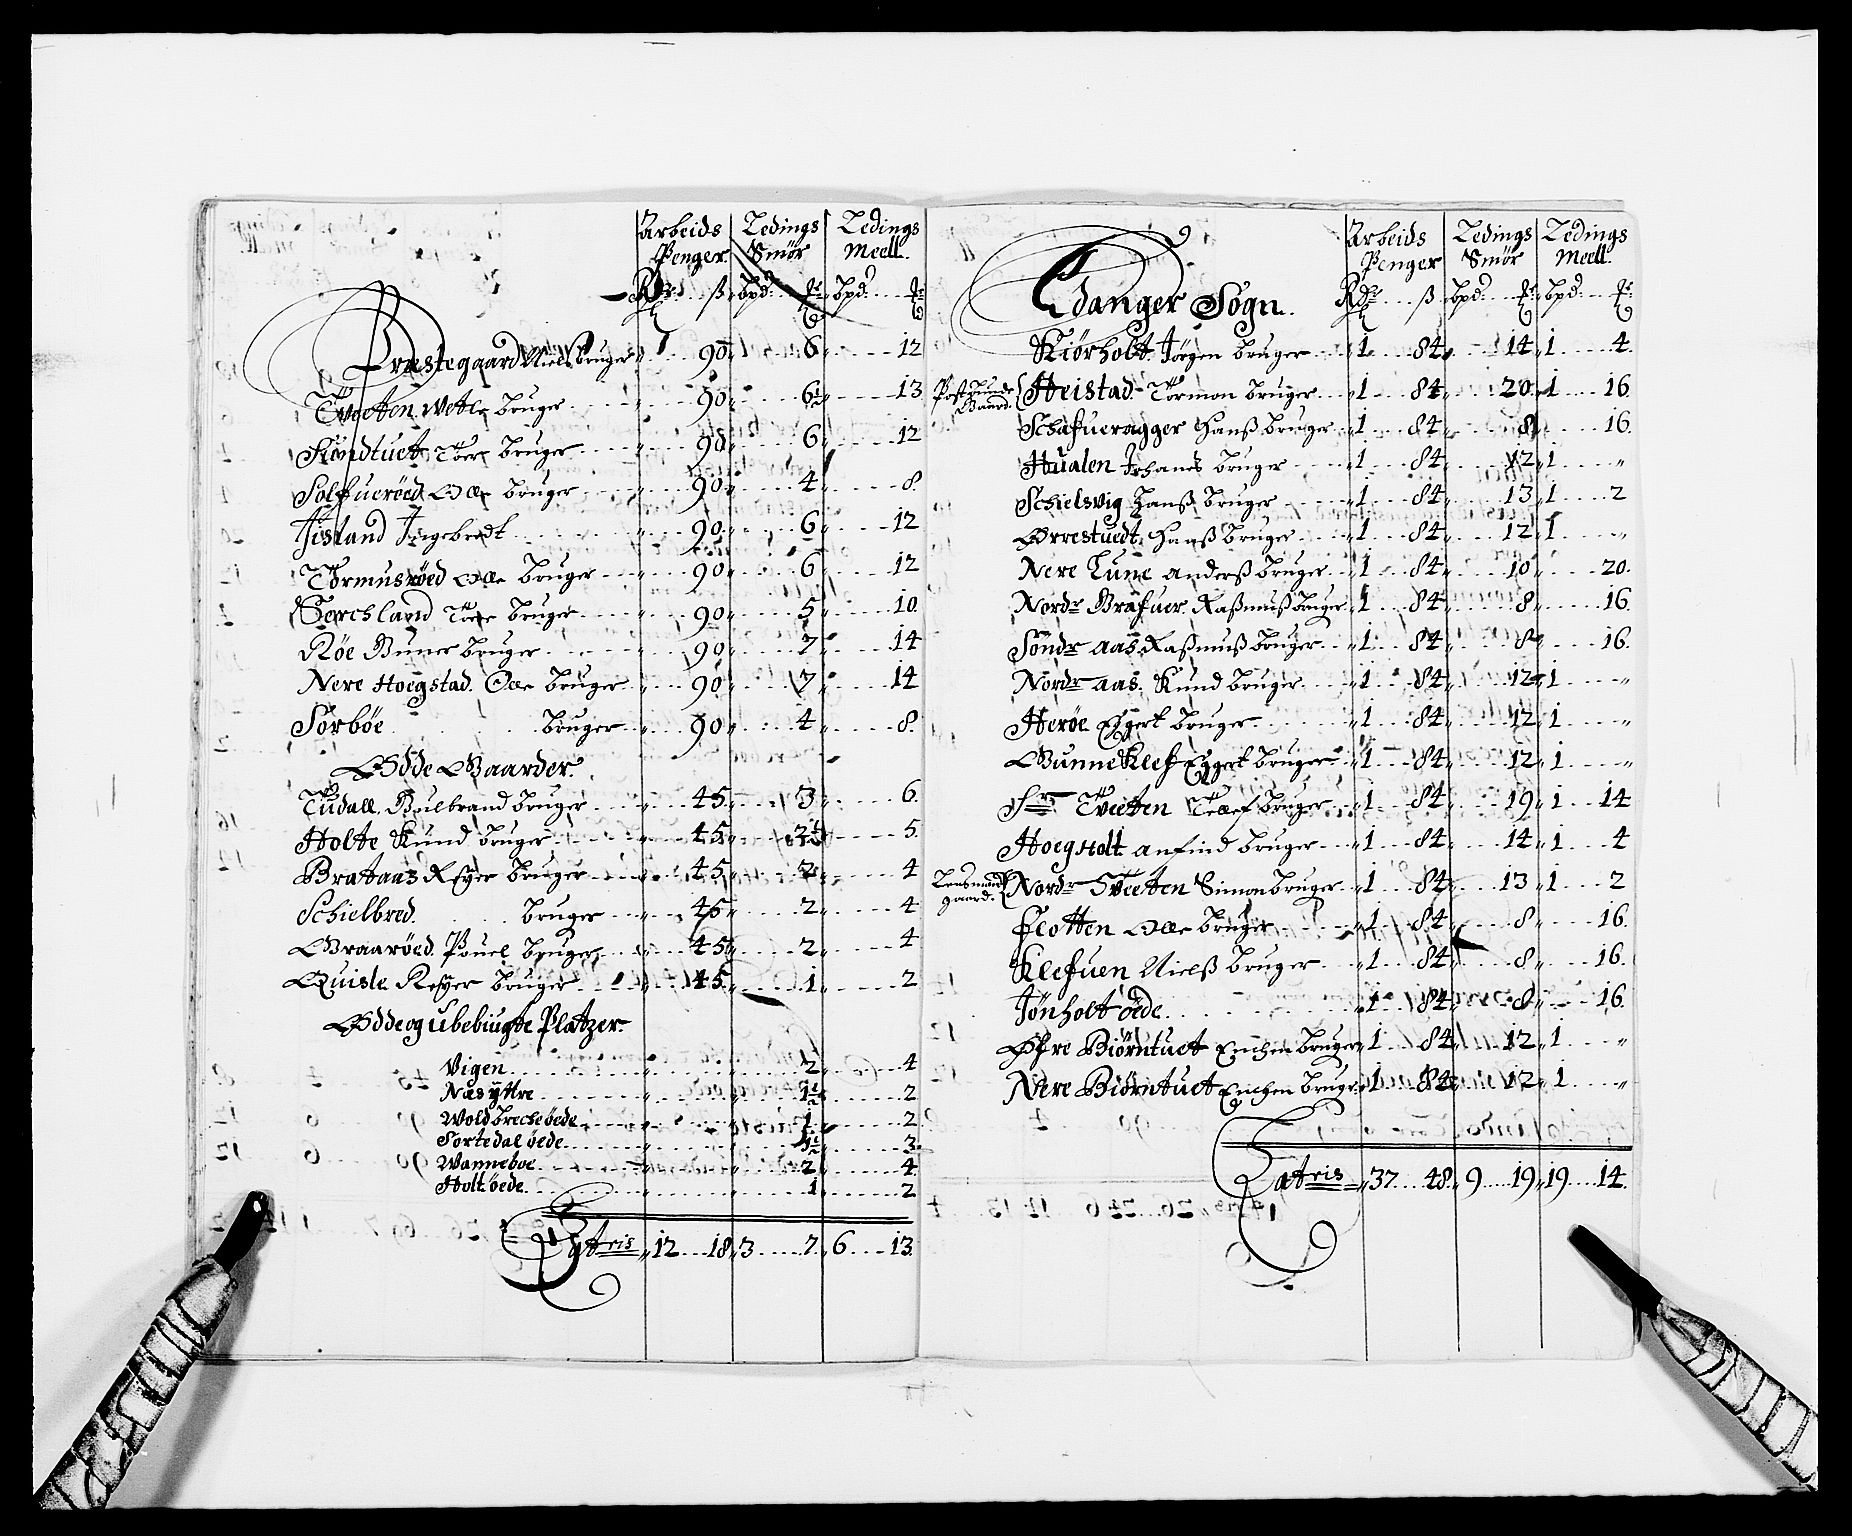 Arbeids Ledings Ledings
Penger. Smör Meell.
Rdr ß bpd: bpd:
Præstegaard Niels bruger „ 90 „ 6 „ 12
Tveten Wetle bruger „ 90 „ 6½ „ 13
Kündtuet Tore bruger „ 90 „ 6 „ 12
Solfueröed Olle bruger „ 90 „ 4 „ 8
Jisland Ingebredt „ 90 „ 6 „ 12
Tormusröed Olle bruger „ 90 „ 6 „ 12
Torchsland Tore bruger „ 90 „ 5 „ 10
Röe Guner bruger „ 90 „ 7 „ 14
Nere Hoegstad. Olle bruger „ 90 „ 7 „ 14
Sörböe bruger „ 90 „ 4 „ 8
Ödde Gaarder.
Tüdall. Gulbrand bruger „ 45 „ 3 „ 6
Holte Knud bruger „ 45 „ 2½ „ 5
Brataas Reÿer bruger „ 45 „ 2 „ 4
Schielbred. bruger „ 45 „ 2 „ 4
Graaröed. Pouel bruger „ 45 „ 2 „ 4
Quisle Reÿer bruger „ 45 „ 1 „ 2
Ödde og ubebiugte Platzer.
Vigen „ 2 „ 4
Næsÿttre „ 1½ „ 2
Woldbrechs öede „ 1 „ 2
Sortedal öede „ 1½ „ 3
Wanneboe „ 2 „ 4
Holt öede „ 1 „ 2
Latris „ 12 18 „ 3 7 „ 6 13
Arbeids Ledings Ledings
Penger Smör Meell.
Edanger Sogn. Rdr ß bpd: bpd:
Kiörholt. Jörgen bruger „ 1 84 „ 14 „ 1 4
Postbunde Gaard. Heistad Tormon bruger „ 1 84 „ 20 „ 1 16
Schafueragger Hanß bruger „ 1 84 „ 8 „ 16
Hualen Johanes bruger „ 1 84 „ 12 „ 1 „
Schielsvig Hanß bruger „ 1 84 „ 13 „ 1 2
Örrestuedt Hanß bruger „ 1 84 „ 12 „ 1 „
Nere Lüne anderß bruger „ 1 84 „ 10 „ 20
Nordr Grafuer. Raßmuß bruger „ 1 84 „ 8 „ 16
Söndr aas Raßmuß bruger „ 1 84 „ 8 „ 16
Nordr aas. Knud bruger „ 1 84 „ 12 „ 1 „
Heröe Eggert bruger „ 1 84 „ 12 „ 1 „
Gunneklef Eggert bruger „ 1 84 „ 12 „ 1 „
Sr Tveten Tollef bruger „ 1 84 „ 19 „ 1 14
Hoegholt anfind bruger „ 1 84 „ 14 „ 1 4
Lensmands gaard. Nordr Tveeten Simon bruger „ 1 84 „ 13 „ 1 2
Flotten Olle bruger „ 1 84 „ 8 „ 16
Klefuen Nielß bruger „ 1 84 „ 8 „ 16
Jönholt öede „ 1 84 „ 8 „ 16
Öfre Biörntuet Enchen bruger „ 1 84 „ 12 „ 1 „
Nere Biörntuet Enchen bruger „ 1 84 „ 12 „ 1 „
Latris „ 37 48 „ 9 19 „ 19 14